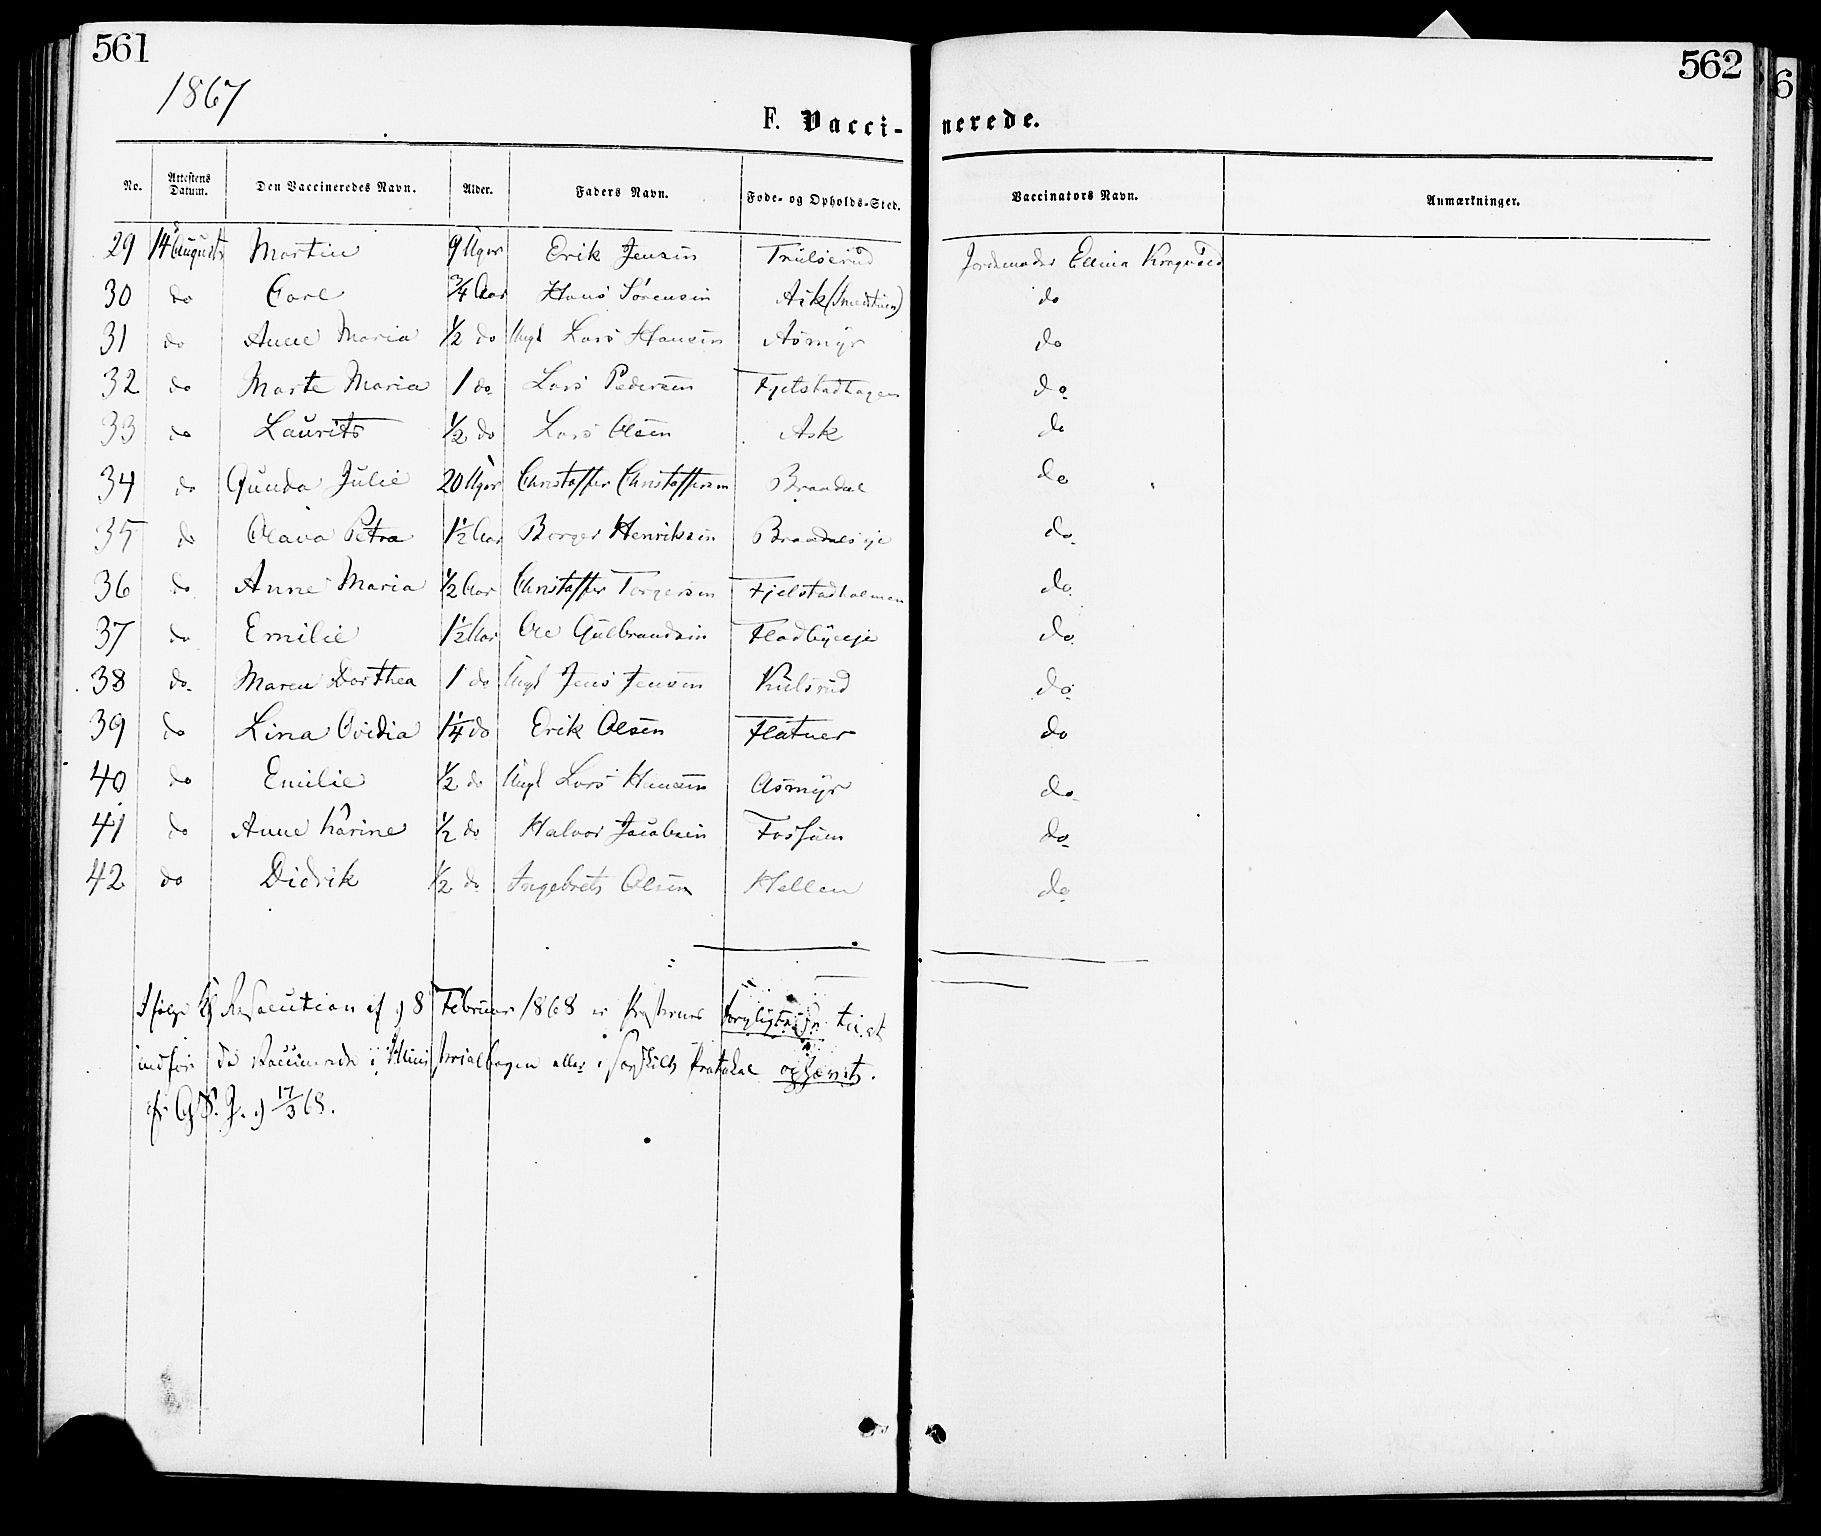 561
562
6
1867
F. Vacci-
nerede.
No. Attestens Datum. Den Vaccineredes Navn. Alder. Faders Navn. Føde- og Opholds-Sted. Vaccinators Navn. Anmærkninger.
29 14 August Martin 9 Uger Erik Jensen Trulserud Jordemoder Elina
30 do Carl 3/4 Aar Hans Sørensen Ask do
31 do Anne Maria 1/2 do Ungk Lars Hansen Asmyr do
32 do Marte Maria 1 do Lars Pedersen Fjelstadhagen do
33 do Laurits 1/2 do Lars Olsen Ask do
34 do Gunda Julie 20 Uger Christoffer Christoffersen Braadal do
35 do Olava Petra 1 1/2 Aar Borger Henriksen do
36 do Anne Maria 1/2 Aar Christoffer Torgersen Fjelstadholmen do
37 do Emilie 1 1/2 Aar Ole Gulbrandsen Fladbyeje do
38 do Maren Dorthea 1 do Ungk Jens Jensen Kulsrud do
39 do Lina Ovidia 1 1/4 do Erik Olsen Flatner do
40 do Emilie 1/2 do Ungk Lars Hansen Asmyr do
41 do Anne Karine 1/2 do Halvor Jacobsen Fossum do
42 do Didrik 1/2 do Ingebret Olsen Hellen do
Ifølge Kgl Resolution af 8 Februar 1868 er Præsternes til at
indføre de Vaccinerede i Ministerialbogen eller i særskilt Protokol ophævet.
17/3 68.